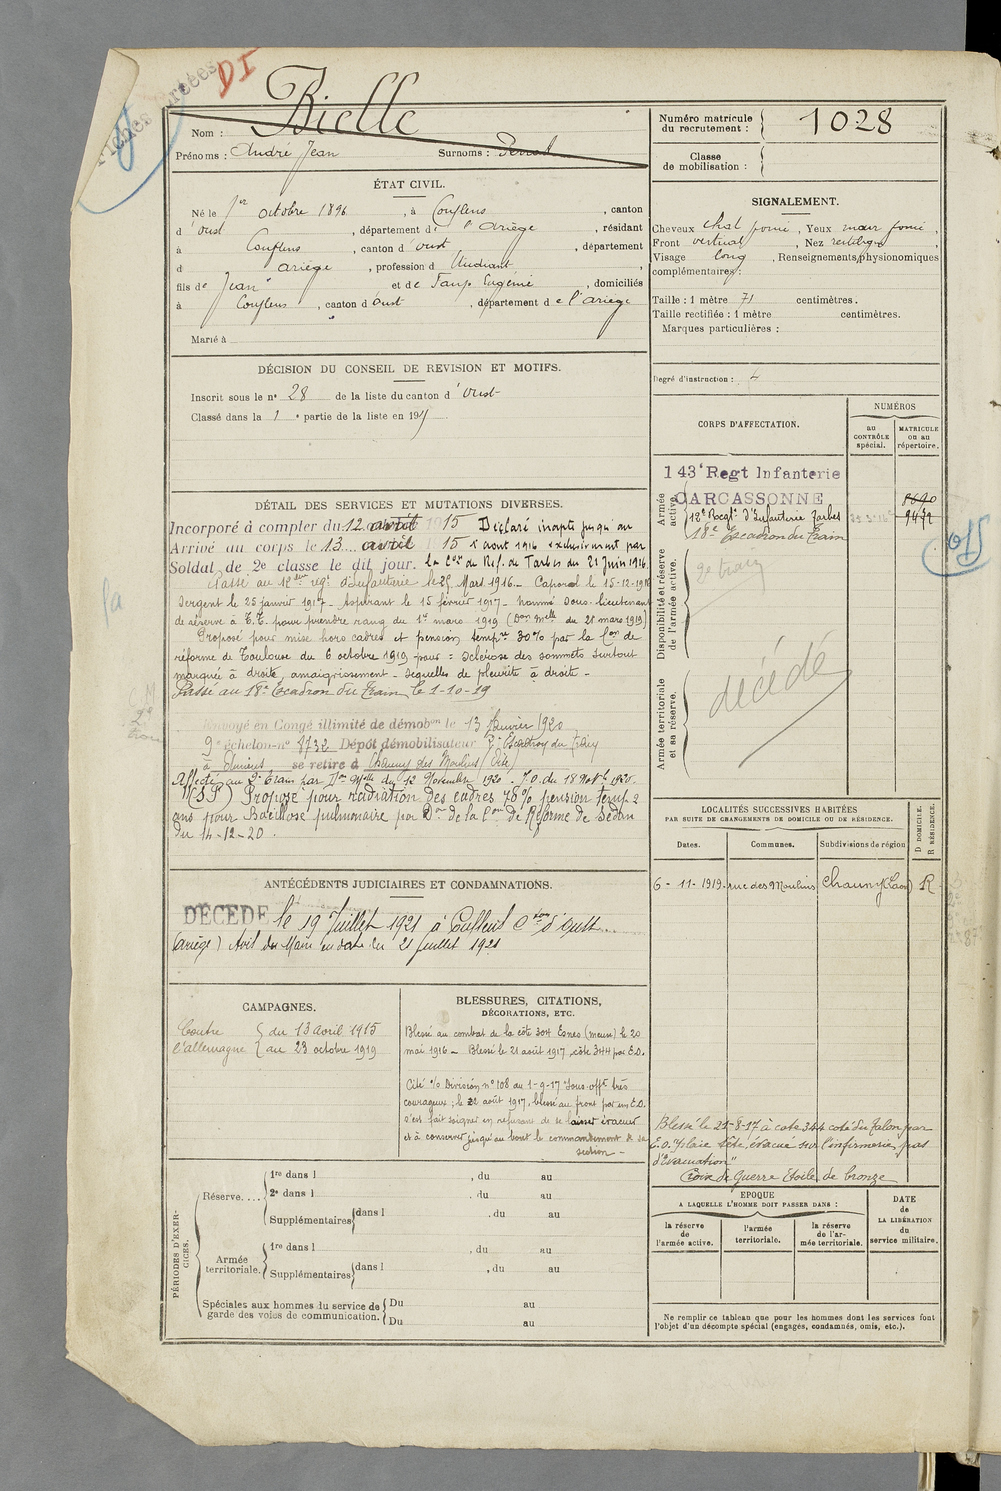 Fiches créées
DI
Bielle
Nom :
Prénoms : André Jean Surnoms :
Numéro matricule
du recrutement : 1028
Classe
de mobilisation :
ÉTAT CIVIL.
Né le 1er octobre 1896, à Couflens, canton
d'oust, département de l'Ariège, résidant
à Couflens, canton d'oust, département
d ariège, profession d'étudiant
fils de Jean et de Eugénie, domiciliés
à Couflens, canton d'oust, département de l'ariège
Marié à
SIGNALEMENT.
Cheveux chat foncé, Yeux foncé,
Front vertical, Nez rectiligne,
Visage long, Renseignements physionomiques
complémentaires :
Taille : 1 mètre 71 centimètres.
Taille rectifiée : 1 mètre centimètres.
Marques particulières :
Degré d'instruction : 4
DÉCISION DU CONSEIL DE REVISION ET MOTIFS.
Inscrit sous le n° 28 de la liste du canton d'oust
Classé dans la 1e partie de la liste en 191
CORPS D'AFFECTATION.
NUMÉROS
au
CONTRÔLE
spécial.
MATRICULE
ou au
répertoire.
Armée
active.
143e Regt Infanterie
CARCASSONNE
12e Regt D'Infanterie Tarbes
18e Escadron du Train
Disponibilité et réserve
de l'armée active.
2e train
Armée territoriale
et sa réserve.
décédé
DÉTAIL DES SERVICES ET MUTATIONS DIVERSES.
Incorporé à compter du 12 avril 1915 Déclaré inapte jusqu'au
Arrivé au corps le 13 avril 15 1er aout 1916 exclusivement par
Soldat de 2e classe le dit jour. la Con de Réf. de Tarbes du 21 juin 1916.
Passé au 12ème régt d'Infanterie le 25 Mars 1916 - Caporal le 15-12-1916
Sergent le 25 janvier 1917 - Aspirant le 15 février 1917 - nommé sous-lieutenant
de réserve à T.T. pour prendre rang du 1er mars 1919 (Don Melle du 21 mars 1919)
Proposé pour mise hors cadres et pension tempre 30% par la Con de
réforme de Toulouse du 6 octobre 1919 pour : sclérose des sommets surtout
marquée à droite, amaigrissement - séquelles de pleurite à droite -
Passé au 18e Escadron du Train, le 1-10-19
Envoyé en Congé illimité de démobon le 13 février 1920
9e échelon - n° 1732 Dépôt démobilisateur 2e Escadron du Train
à Amiens se retire à Chauny des Moulins
Affecté au 2e Train par Don Melle du 12 Novembre 1920 - J.O. du 18 Nov. 1920
Proposé pour radiation des cadres 70% pension temp. 2
ans pour Bacillose pulmonaire par Don de la Con de Réforme de Sedan
du 14-12-20.
LOCALITÉS SUCCESSIVES HABITÉES
PAR SUITE DE CHANGEMENTS DE DOMICILE OU DE RÉSIDENCE.
Dates. Communes. Subdivisions de région
D DOMICILE.
R RÉSIDENCE.
6-11-1919 rue des Moulins Chauny (Laon) R
ANTÉCÉDENTS JUDICIAIRES ET CONDAMNATIONS.
DÉCÉDÉ le 19 Juillet 1921 à Couflens Cton d'Oust
(Ariège) Avis du Maire en date du 21 juillet 1921
CAMPAGNES.
Contre du 13 avril 1915
l'allemagne au 23 octobre 1919
BLESSURES, CITATIONS,
DÉCORATIONS, ETC.
Blessé au combat de la côte 304 Esnes (meuse) le 20
mai 1916 - Blessé le 21 août 1917, côte 344 par E.O.
Cité % Division n° 108 du 1-9-17 Sous-offr très
courageux ; le 22 août 1917, blessé au front par un E.O.
s'est fait soigner en refusant de se laisser évacuer
et à conserver jusqu'au bout le commandement de sa
section -
Blessé le 21-8-17 à cote 344 coté du Talou par
E.O. plaie tête, évacué sur l'infirmerie, pas
d'Evacuation"
Croix de guerre Etoile de bronze
PÉRIODES D'EXERCICES.
Réserve....
1re dans l , du au
2e dans l , du au
Supplémentaires dans l , du au
Armée
territoriale.
1re dans l , du au
Supplémentaires dans l , du au
Spéciales aux hommes du service de
garde des voies de communication.
Du au
Du au
EPOQUE
A LAQUELLE L'HOMME DOIT PASSER DANS :
la réserve
de
l'armée active.
l'armée
territoriale.
la réserve
de l'ar-
mée territoriale.
DATE
de
LA LIBÉRATION
du
service militaire.
Ne remplir ce tableau que pour les hommes dont les services font
l'objet d'un décompte spécial (engagés, condamnés, omis, etc.).